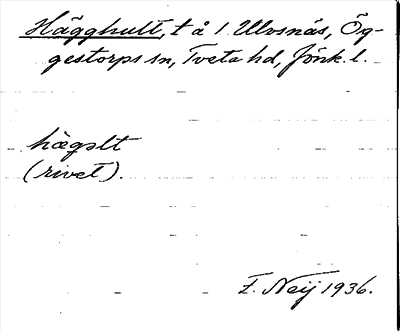 Hägghult, t å 1 Ulvsnäs, Ög-
gestorps sn, Tveta hd, Jönk. l.
hægəlt
(rivet).
F. Neij 1936.